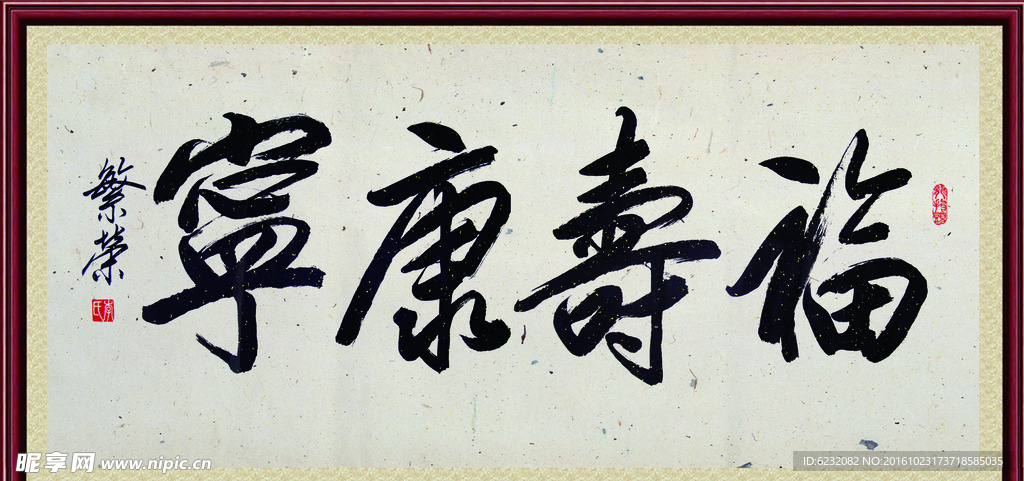 福壽康寧
繁榮
李氏
昵享网 www.nipic.cn
ID:6232082 NO:20161023173718585035